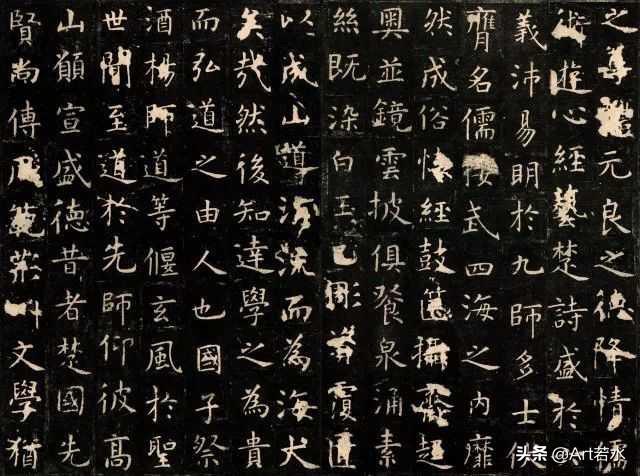 之尊禮元良之德降情儒
術遊心經藝楚詩盛於
義沛易明於九師多士伏
膺名儒接武四海之內靡
然成俗懷經鼓篋攝齊趍
奧並鏡雲披俱飡泉涌素
絲既染白玉已彫資覆匱
以成山導涓流而為海大
矣哉然後知達學之為貴
而弘道之由人也國子祭
酒楊師道等偃玄風於聖
世聞至道於先師仰彼高
山願宣盛德昔者楚國先
賢尚傳風範荊州文學猶
头条 @Art若水